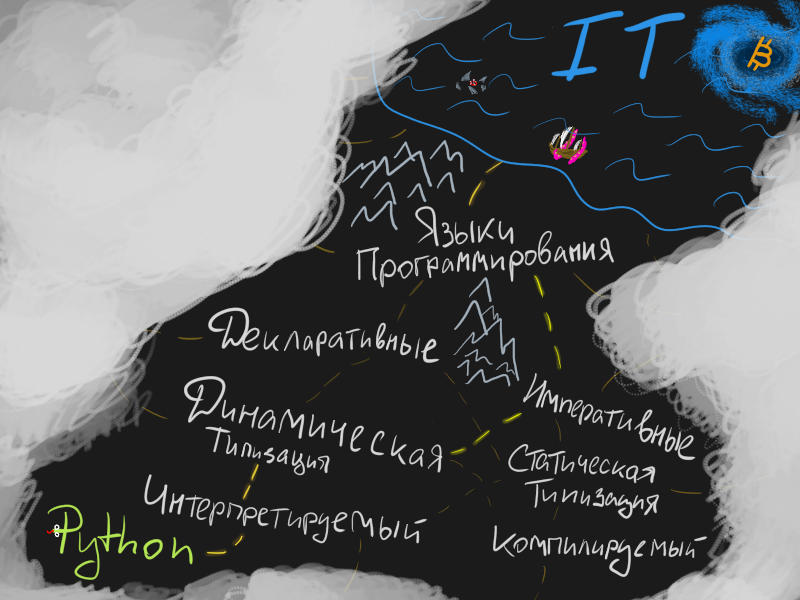 IT
Языки
Программирования
Декларативные
Императивные
Динамическая
Типизация
Статическая
Типизация
Интерпретируемый
Компилируемый
Python